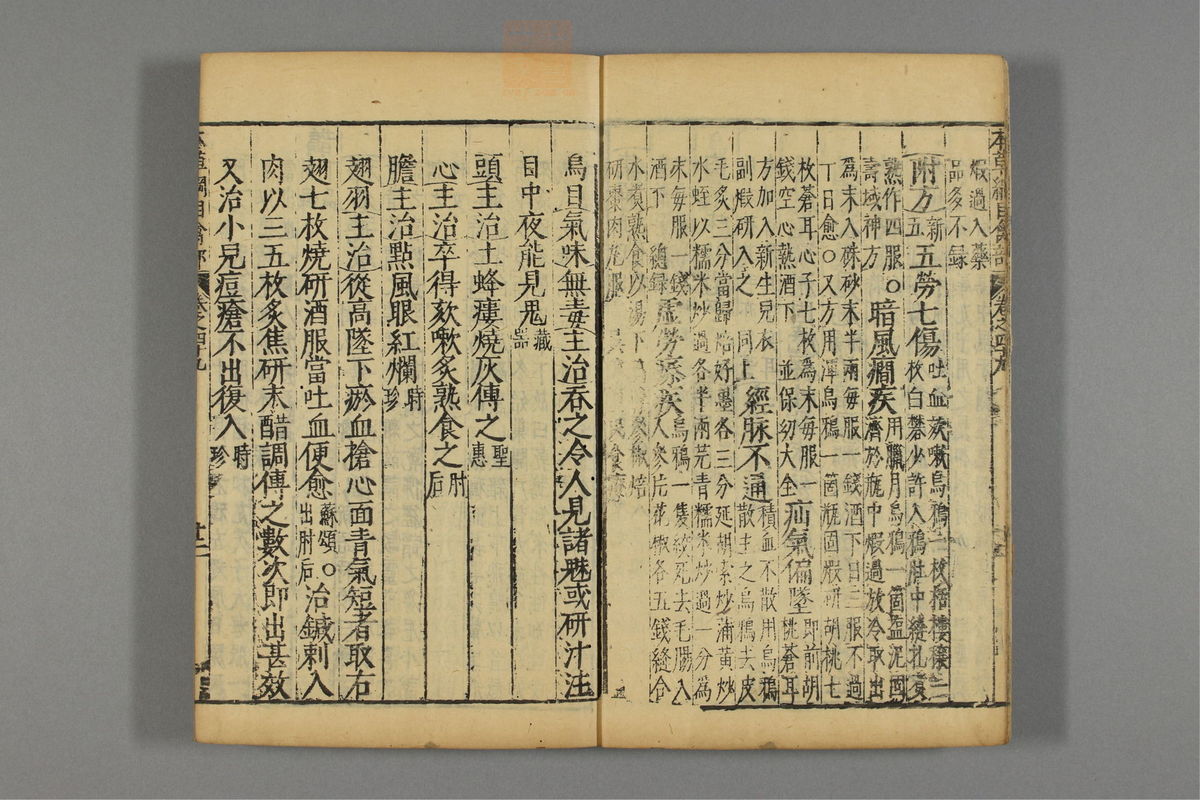 煆過入藥
品多不錄
附方新五五勞七傷吐血欬嗽烏鴉一枚栝樓穰一
枚白礬少許入鴉肚中縫扎煑
熟作四服
壽域神方○暗風癎疾用臘月烏鴉一箇鹽泥固
濟於瓶中煆過放冷取出
爲末入硃砂末半兩每服一錢酒下日三服不過
十日愈○又方用渾烏鴉一箇瓶固煆研胡桃七
枚蒼耳心子七枚爲末每服一
錢空心熱酒下 並保幼大全疝氣偏墜即前胡
桃蒼耳
方加入新生兒衣
副煆研入之 同上經脉不通積血不散用烏鴉
散主之烏鴉去皮
毛炙三分當歸焙好墨各三分延胡索炒蒲黄炒
水蛭以糯米炒過各半兩芫青糯米炒過一分爲
末每服一錢
酒下 總錄虛勞瘵疾烏鴉一隻絞死去毛腸入
人參片花椒各五錢縫合
水煑熟食以湯下
研棗肉丸服
烏目氣味無毒主治吞之令人見諸魅或研汁注
目中夜能見鬼藏器
頭主治土蜂瘻燒灰傅之聖惠
心主治卒得欬嗽炙熟食之肘后
膽主治點風眼紅爛時珍
翅羽主治從高墜下瘀血搶心面青氣短者取右
翅七枚燒研酒服當吐血便愈蘇頌出肘后○治鍼刺入
肉以三五枚炙焦研末醋調傅之數次即出甚效
又治小兒痘瘡不出復入時珍